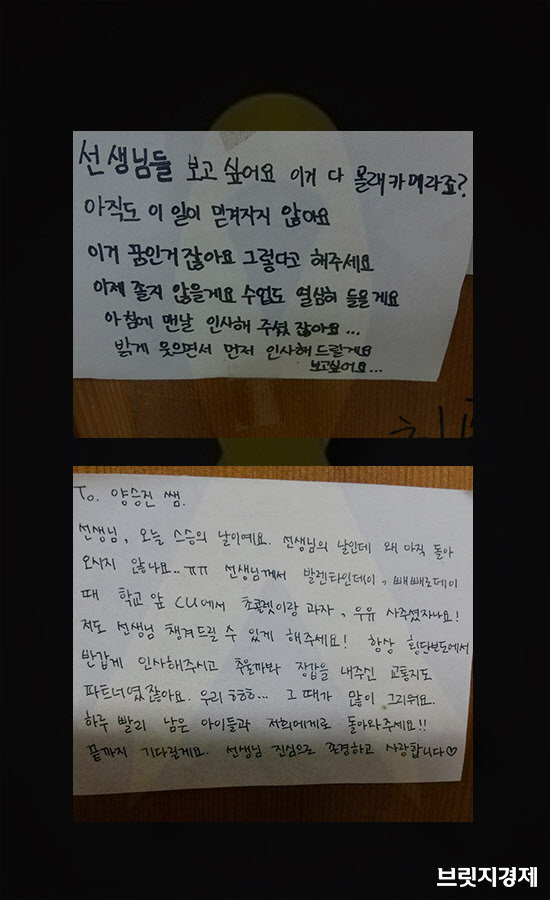 선생님들 보고 싶어요 이거 다 몰래카메라죠?
아직도 이 일이 믿겨지지 않아요
이거 꿈인거 잖아요 그렇다고 해주세요
이제 졸지 않을게요 수업도 열심히 들을게요
아침에 맨날 인사해 주셨잖아요...
밝게 웃으면서 먼저 인사해드릴게요
보고싶어요...
To. 양승진 쌤.
선생님, 오늘 스승의 날이예요. 선생님의 날인데 왜 아직 돌아
오시지 않나요.. ㅠㅠ 선생님께서 발렌타인데이, 빼빼로데이
때 학교 앞 CU에서 초콜렛이랑 과자, 우유 사주셨자나요!
저도 선생님 챙겨드릴 수 있게 해주세요! 항상 횡단보도에서
반갑게 인사해주시고 추울까봐 장갑을 내주신 교통지도
파트너였잖아요. 우리 ㅎㅎㅎ... 그 때가 많이 그리워요.
하루 빨리 남은 아이들과 저희에게로 돌아와주세요!!
끝까지 기다릴게요. 선생님 진심으로 존경하고 사랑합니다♡
브릿지경제